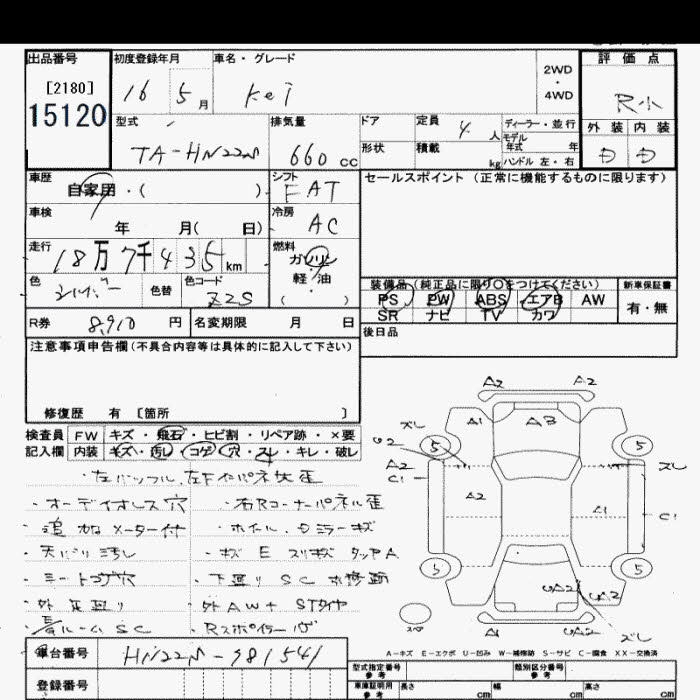 出品番号
[2180]
15120
初度登録年月
16 5 月
車名・グレード
Kei
2WD
・
4WD
評価点
R小
外装 内装
D D
型式
TA-HN22S
排気量
660 cc
ドア
形状
定員
4 人
積載
kg
ディーラー・並行
モデル
年式 年
ハンドル 左・右
車歴
自家用・( )
シフト
FAT
セールスポイント(正常に機能するものに限ります)
車検
年 月( 日)
冷房
AC
走行
18万7千435km
燃料
ガソリン
軽・油
( ・ )
色
シルバー
色替
色コード
Z2S
装備品(純正品に限り○をつけてください)
PS PW ABS エアB AW
SR ナビ TV カワ
新車保証書
有・無
R券 8,910 円
名変期限 月 日
後日品
注意事項申告欄(不具合内容等は具体的に記入して下さい)
修復歴 有 [箇所 ]
検査員 FW キズ・飛石・ヒビ割・リペア跡・×要
記入欄 内装 キズ・汚し・コゲ・穴・スレ・キレ・破レ
・オーディオレス 穴
・右Rコーナーパネル歪
・追加メーター付
・ホイール、Dミラーキズ
・天バリ汚レ
・シートコゲ穴
・下廻りSC
・外 足廻り
・外AW+STタイヤ
ルームSC
・Rスポイラー
A2 A2
A1 AB
ズレ
5 5
U2
A2
C1
A2
ズレ
C1
A1
5 5
UA2
UA2
スペ
A1 UA2
ズレ
A-キズ E-エクボ U-凹み W-補修跡 S-サビ C-腐食 XX-交換済
車台番号 HN22S-981541
登録番号
型式指定番号
参考
類別区分番号
参考
車庫証明用
参考
長さ cm 幅 cm 高さ cm